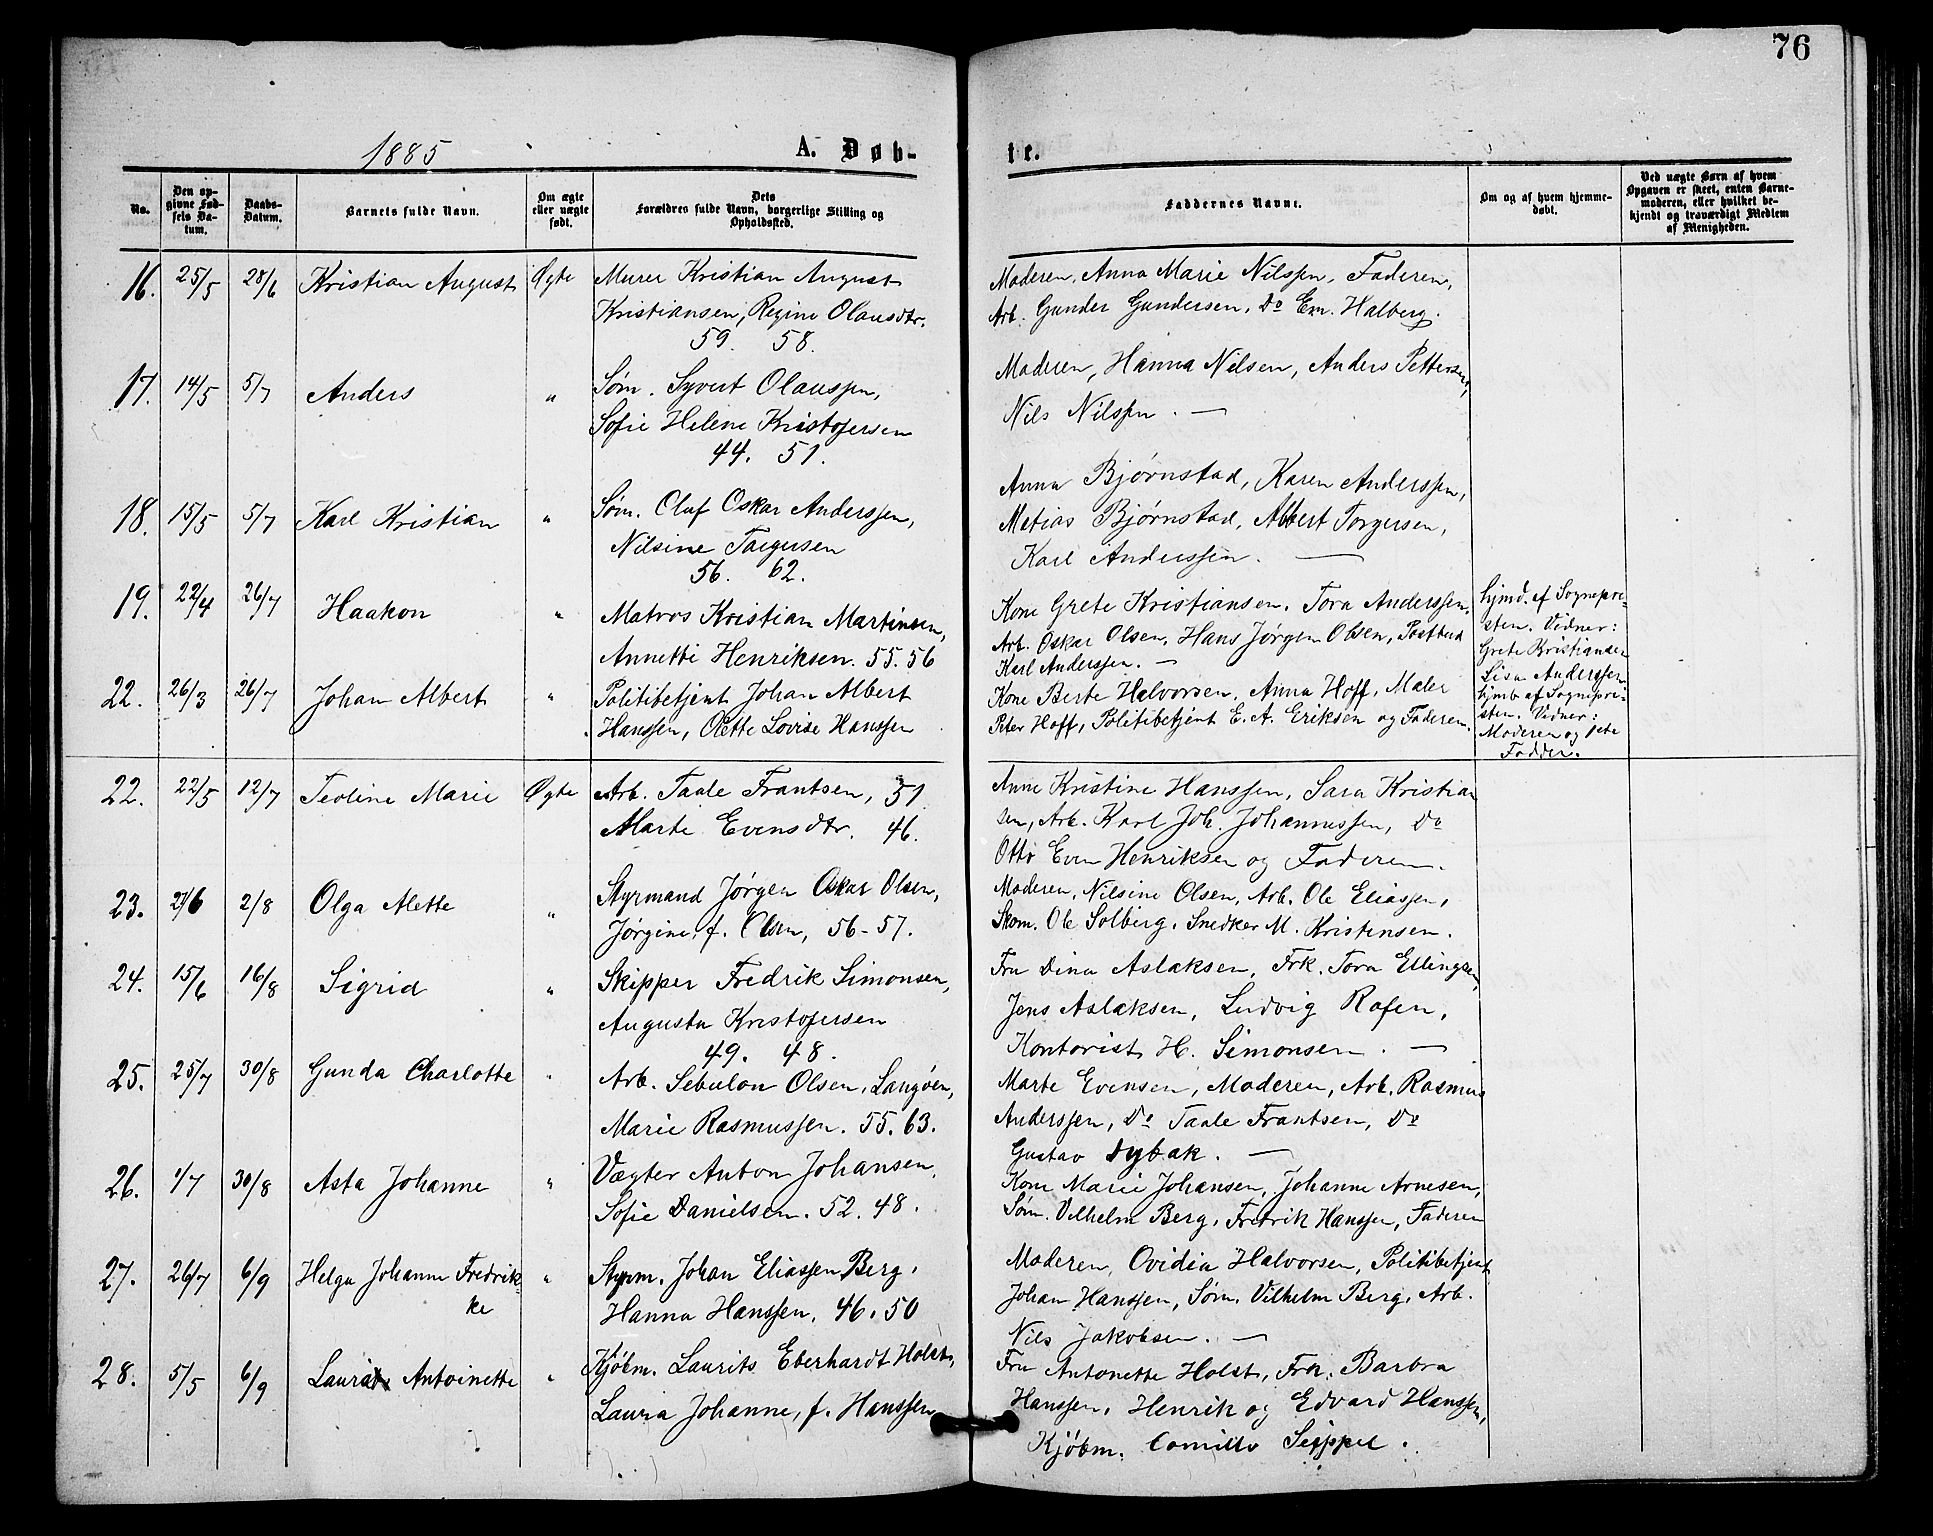 76
1885 A. Døb-
te.
No.
Den op-
givne Fød-
sels Da-
tum.
Daabs-
Datum.
Barnets fulde Navn.
Om ægte
eller uægte
født.
Dets
Forældres fulde Navn, borgerlige Stilling og
Opholdssted.
Faddernes Navne.
Om og af hvem hjemme-
døbt.
Ved uægte Børn af hvem
Opgaven er skeet, enten Barne-
moderen, eller hvilket be-
kjendt og troværdigt Medlem
af Menigheden.
16. 25/5 28/6 Kristian August Ægte Murer Kristian August
Kristiansen, Regine Olausdtr.
59. 58.
Moderen, Anna Marie Nilssen, Faderen,
Arb. Gunder Gundersen, Do Em. Halberg.
17. 14/5 5/7 Anders " Søm. Syvert Olaussen,
Sofie Helene Kristofersen
44. 51.
Moderen, Hanna Nilsen, Anders Pettersen,
Nils Nilssen. —
18. 15/5 5/7 Karl Kristian " Søm. Oluf Oskar Anderssen,
Nilsine Torgersen
56. 62.
Anna Bjørnstad, Karen Anderssen,
Matias Bjørnstad, Albert Torgersen,
Karl Anderssen. —
19. 22/4 26/7 Haakon " Matros Kristian Martinsen,
Annette Henriksen. 55. 56
Kone Grete Kristiansen, Tora Anderssen,
Arb. Oskar Olsen, Hans Jørgen Olsen, Postbud
Karl Anderssen. —
hjmd. af Sognepre-
sten. Vidner:
Grete Kristiansen
Lisa Anderssen
22. 26/3 26/7 Johan Albert " Politibetjent Johan Albert
Hanssen, Olette Lovise Hanssen
Kone Berte Halvorsen, Anna Hoff, Maler
Peter Hoff, Politibetjent E. A. Eriksen og Faderen.
hjmb af Sognepre-
sten. Vidner:
Moderen og 1ste
Fadder.
22. 22/5 12/7 Teoline Marie Ægte Arb. Taale Frantsen, 51
Marte Evensdtr. 46.
Anne Kristine Hanssen, Sara Kristian
sen, Arb. Karl Joh. Johannessen, Do
Otto Even Henriksen og Faderen.
23. 2/6 2/8 Olga Alette " Styrmand Jørgen Oskar Olsen,
Jørgine, f. Olsen, 56-57.
Moderen, Nilsine Olsen, Arb. Ole Eliassen,
Skom. Ole Solberg, Snedker M. Kristensen.
24. 15/6 16/8 Sigrid " Skipper Fredrik Simonsen,
Augusta Kristofersen
49. 48.
Fru Dina Aslaksen, Frk. Tora Ellingsen,
Jens Aslaksen, Ludvig Rafen,
Kontorist H. Simonsen. —
25. 25/7 30/8 Gunda Charlotte " Arb. Sebulon Olsen, Langøen,
Marie Rasmussen. 55. 63.
Marte Evensen, Moderen, Arb. Rasmus
Anderssen, Do Taale Frantsen, Do
Gustav Dybak. —
26. 1/7 30/8 Asta Johanne " Vægter Anton Johansen,
Sofie Danielsen. 52. 48.
Kone Marie Johansen, Johanne Arnesen,
Søm. Vilhelm Berg, Fredrik Hanssen, Faderen
27. 26/7 6/9 Helga Johanne Fredrik-
ke " Styrm. Johan Eliassen Berg,
Hanna Hanssen, 46. 50
Moderen, Ovidia Halvorsen, Politibetjent
Johan Hanssen, Søm. Vilhelm Berg, Arb.
Nils Jakobsen. —
28. 5/5 6/9 Antoinette " Kjøbm. Laurits Eberhardt Holst,
Laura Johanne, f. Hanssen
Fru Antonette Holst, Frk. Barbra
Hanssen, Henrik og Edvard Hanssen,
Kjøbm. Camillo Seippel.